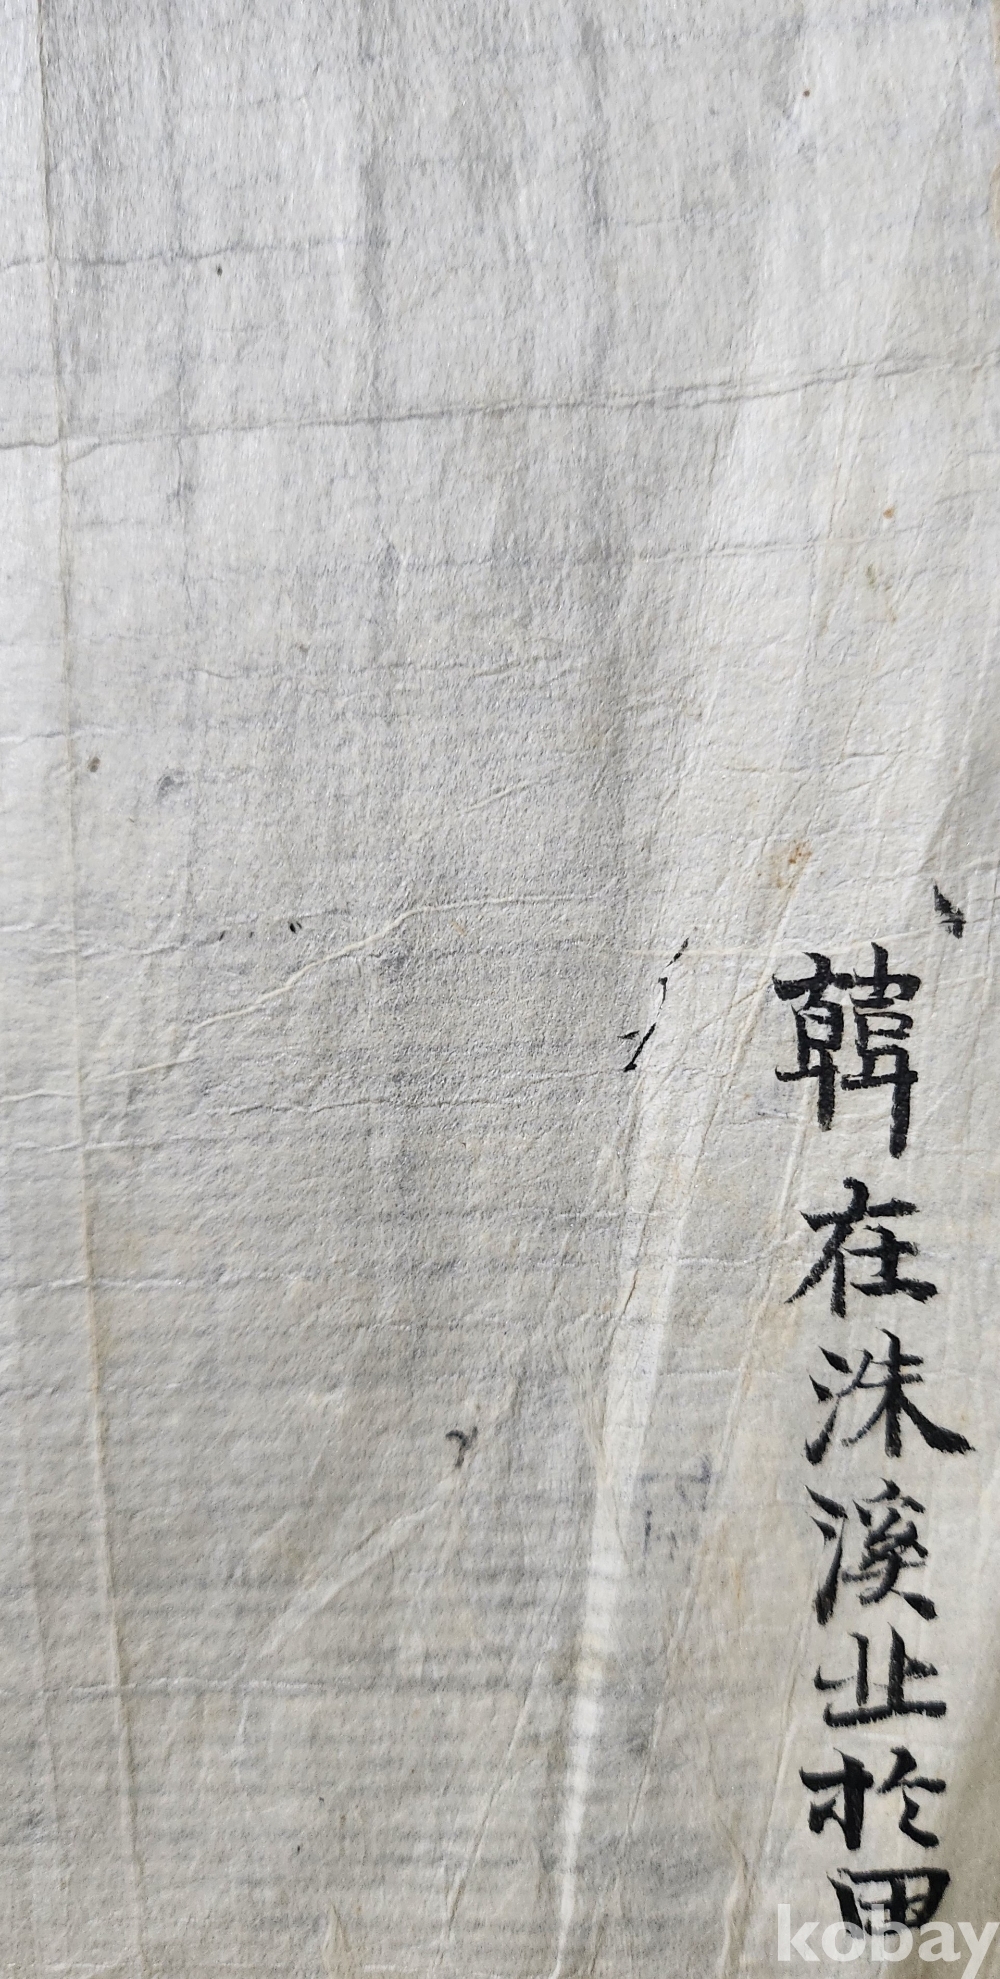 韓在洙溪北於
kobay